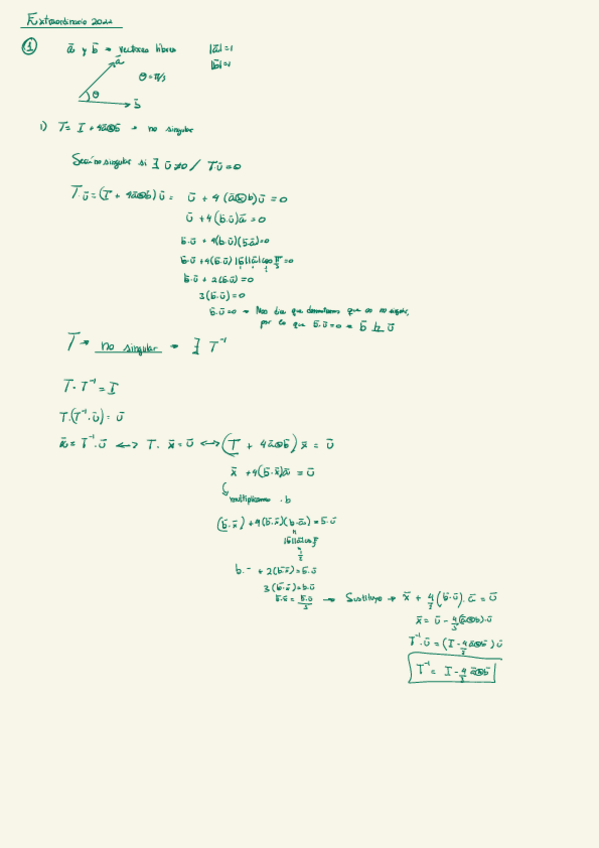 Extraordinario 2022
① ā y b̄ → vectores libres |ā|=1
|b̄|=1
ā
θ=π/3
θ
b̄
1) T= I + 4ā⊗b̄ → no singular
Será no singular si ∄ ū≠0 / T·ū=0
T·ū=(I + 4ā⊗b)ū = ū + 4(ā⊗b)ū = 0
ū + 4(b̄·ū)ā = 0
b̄·ū + 4(b·ū)(b̄·ā)=0
b̄·ū + 4(b̄·ū)|b̄||ā|cos π/3 = 0
b̄·ū + 2(b̄·ū) = 0
3(b̄·ū) = 0
b̄·ū=0 → Nos que demostramos que es no singular,
por lo que b̄·ū=0 → b̄ ū
T → no singular → ∃ T⁻¹
T·T⁻¹ = I
T·(T⁻¹·ū) = ū
x̄ = T⁻¹·ū ⟷ T·x̄ = ū ⟷ (I + 4ā⊗b̄)x̄ = ū
x̄ + 4(b̄·x̄)ā = ū
multiplicamos ·b
(b̄·x̄) + 4(b̄·x̄)(b·ā) = b̄·ū
|b̄||ā|cos π/3
1/2
b·- + 2(b·x̄) = b̄·ū
3(b̄·x̄) = b·ū
b̄·x̄ = b̄·ū/3 → Sustituyo → x̄ + 4/3(b̄·ū)·ā = ū
x̄ = ū - 4/3(ā⊗b)·ū
T⁻¹·ū = (I - 4/3 ā⊗b̄)ū
T⁻¹ = I - 4/3 ā⊗b̄